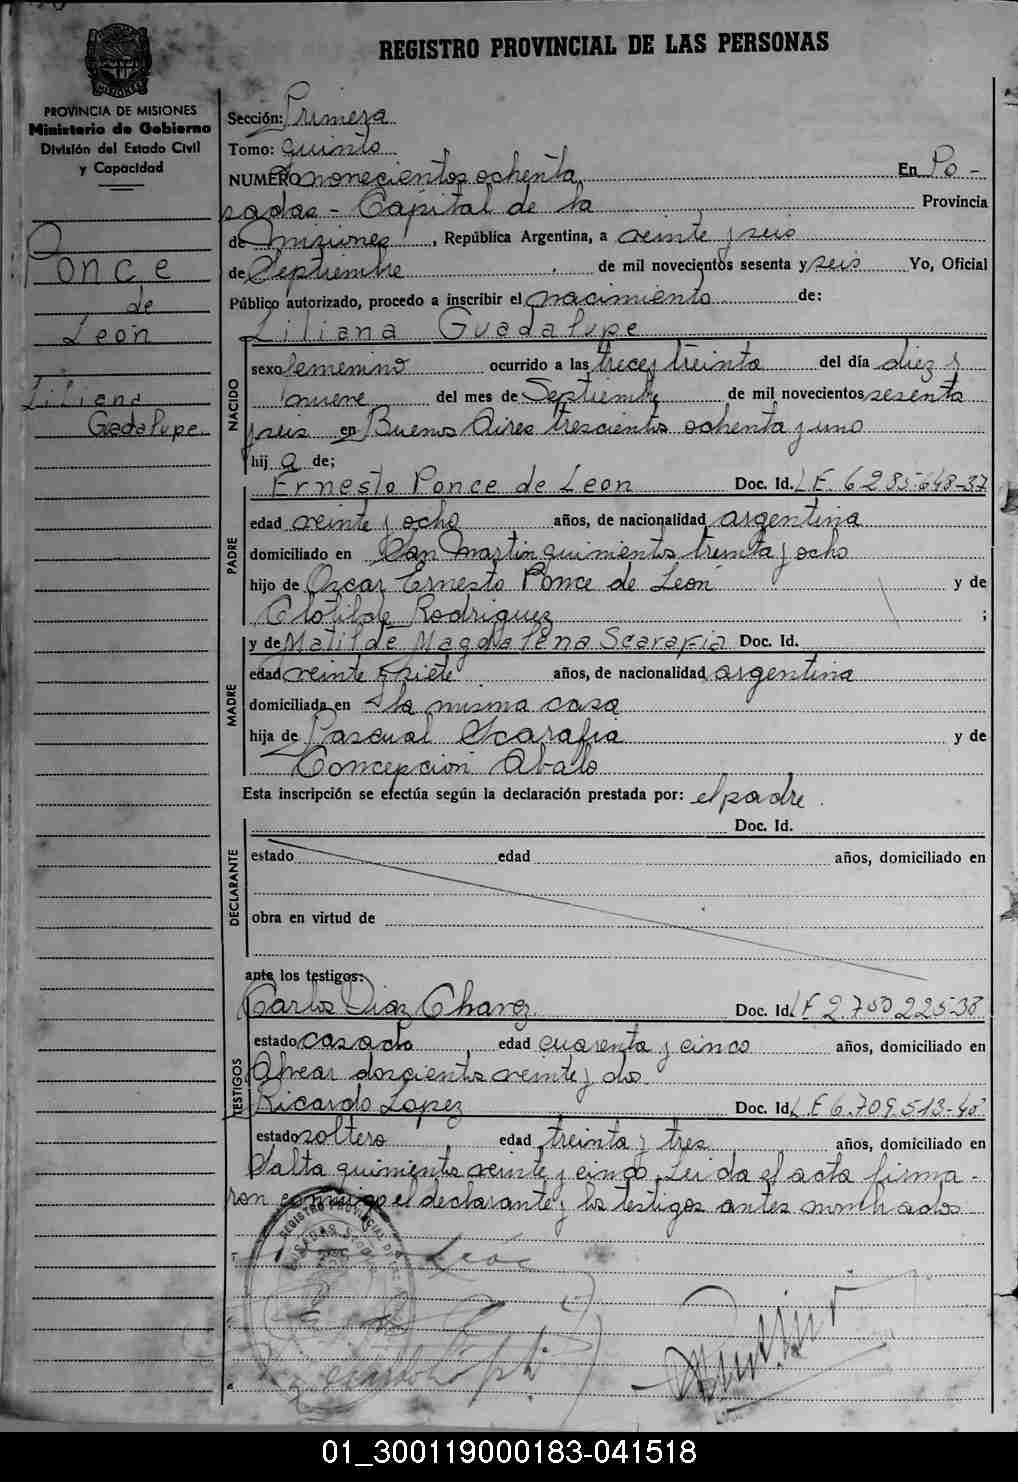 REGISTRO PROVINCIAL DE LAS PERSONAS
PROVINCIA DE MISIONES
Ministerio de Gobierno
División del Estado Civil
y Capacidad
Ponce
de
León
Liliana
Guadalupe
Sección: Primera
Tomo: quinto
NUMERO novecientos ochenta En Po-
sadas - Capital de la Provincia
de Misiones, República Argentina, a veinte y seis
de Septiembre de mil novecientos sesenta y seis Yo, Oficial
Público autorizado, procedo a inscribir el nacimiento de:
Liliana Guadalupe
NACIDO
sexo femenino ocurrido a las trece y treinta del día diez y
nueve del mes de Septiembre de mil novecientos sesenta
y seis en Buenos Aires trescientos ochenta y uno
hij a de;
Ernesto Ponce de Leon Doc. Id. L.E. 6.285.648-37
PADRE
edad veinte y ocho años, de nacionalidad argentina
domiciliado en San Martin quinientos treinta y ocho
hijo de Oscar Ernesto Ponce de León y de
Clotilde Rodriguez ;
y de Matilde Magdalena Scarafia Doc. Id.
MADRE
edad veinte y siete años, de nacionalidad argentina
domiciliada en la misma casa
hija de Pascual Scarafia y de
Concepcion Abalo
Esta inscripción se efectúa según la declaración prestada por: el padre.
Doc. Id.
DECLARANTE
estado edad años, domiciliado en
obra en virtud de
ante los testigos:
Carlos Diaz Chavez Doc. Id. L.E 2.750.225-38
TESTIGOS
estado casado, edad cuarenta y cinco años, domiciliado en
Alvear doscientos veinte y dos
Ricardo Lopez Doc. Id. L.E 6.709.513-40
estado soltero, edad treinta y tres años, domiciliado en
Salta quinientos veinte y cinco. Leida el acta firma-
ron conmigo el declarante y los testigos antes nombrados
REGISTRO PROVINCIAL DE
León
01_300119000183-041518